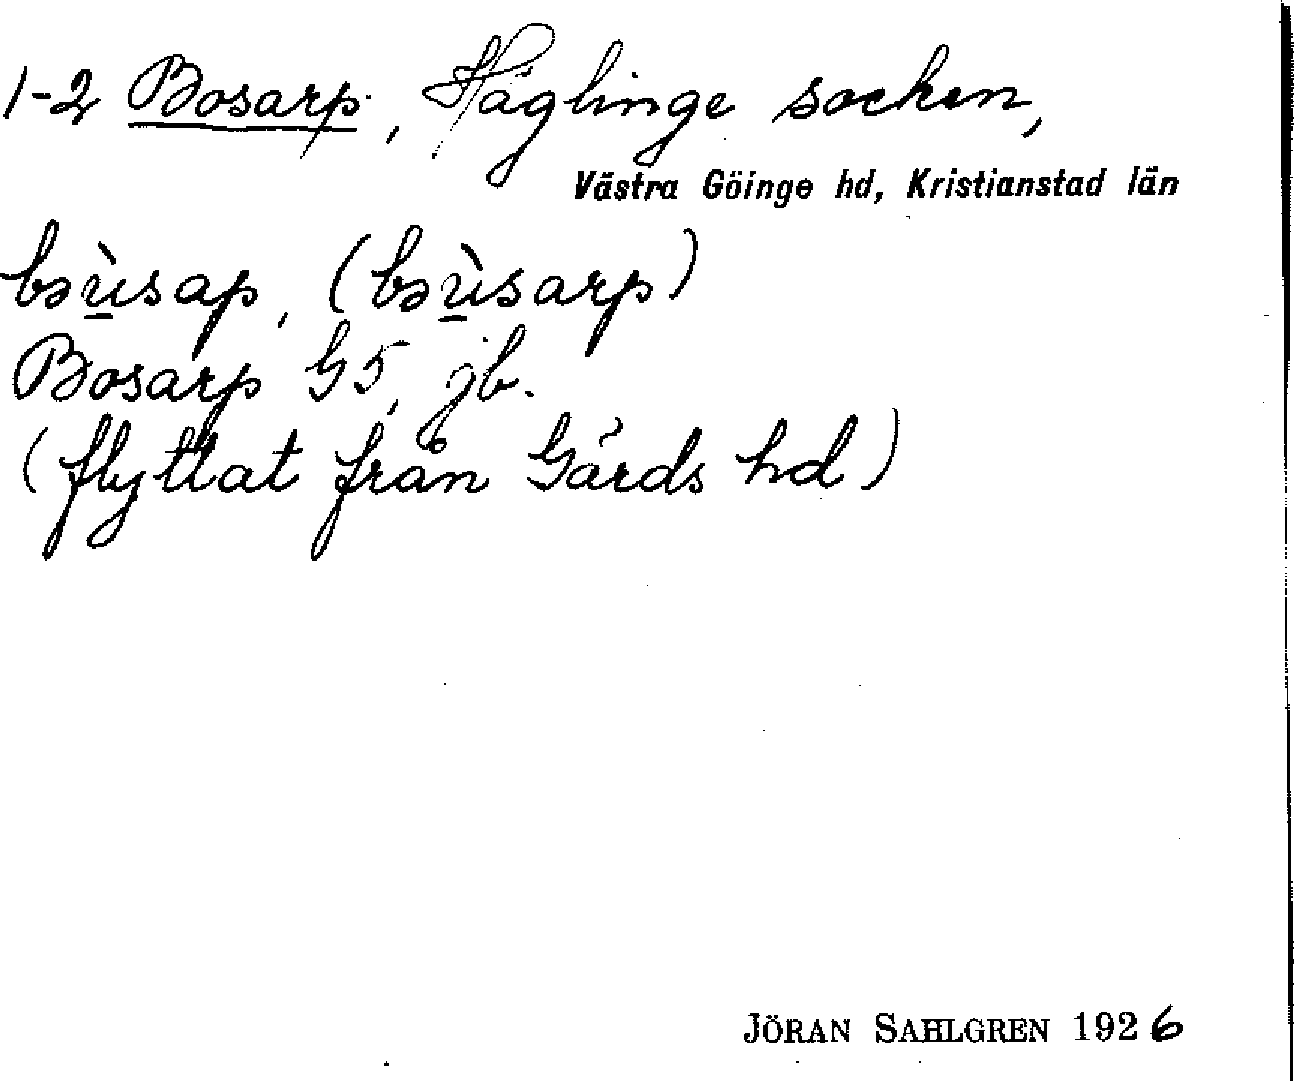 1-2 Bosarp, Häglinge socken,
Västra Göinge hd, Kristianstad län
bəù̠sap, (bəù̠sarp)
Bosarp G5, jb.
(flyttat från Gärds hd)
JÖRAN SAHLGREN 1926